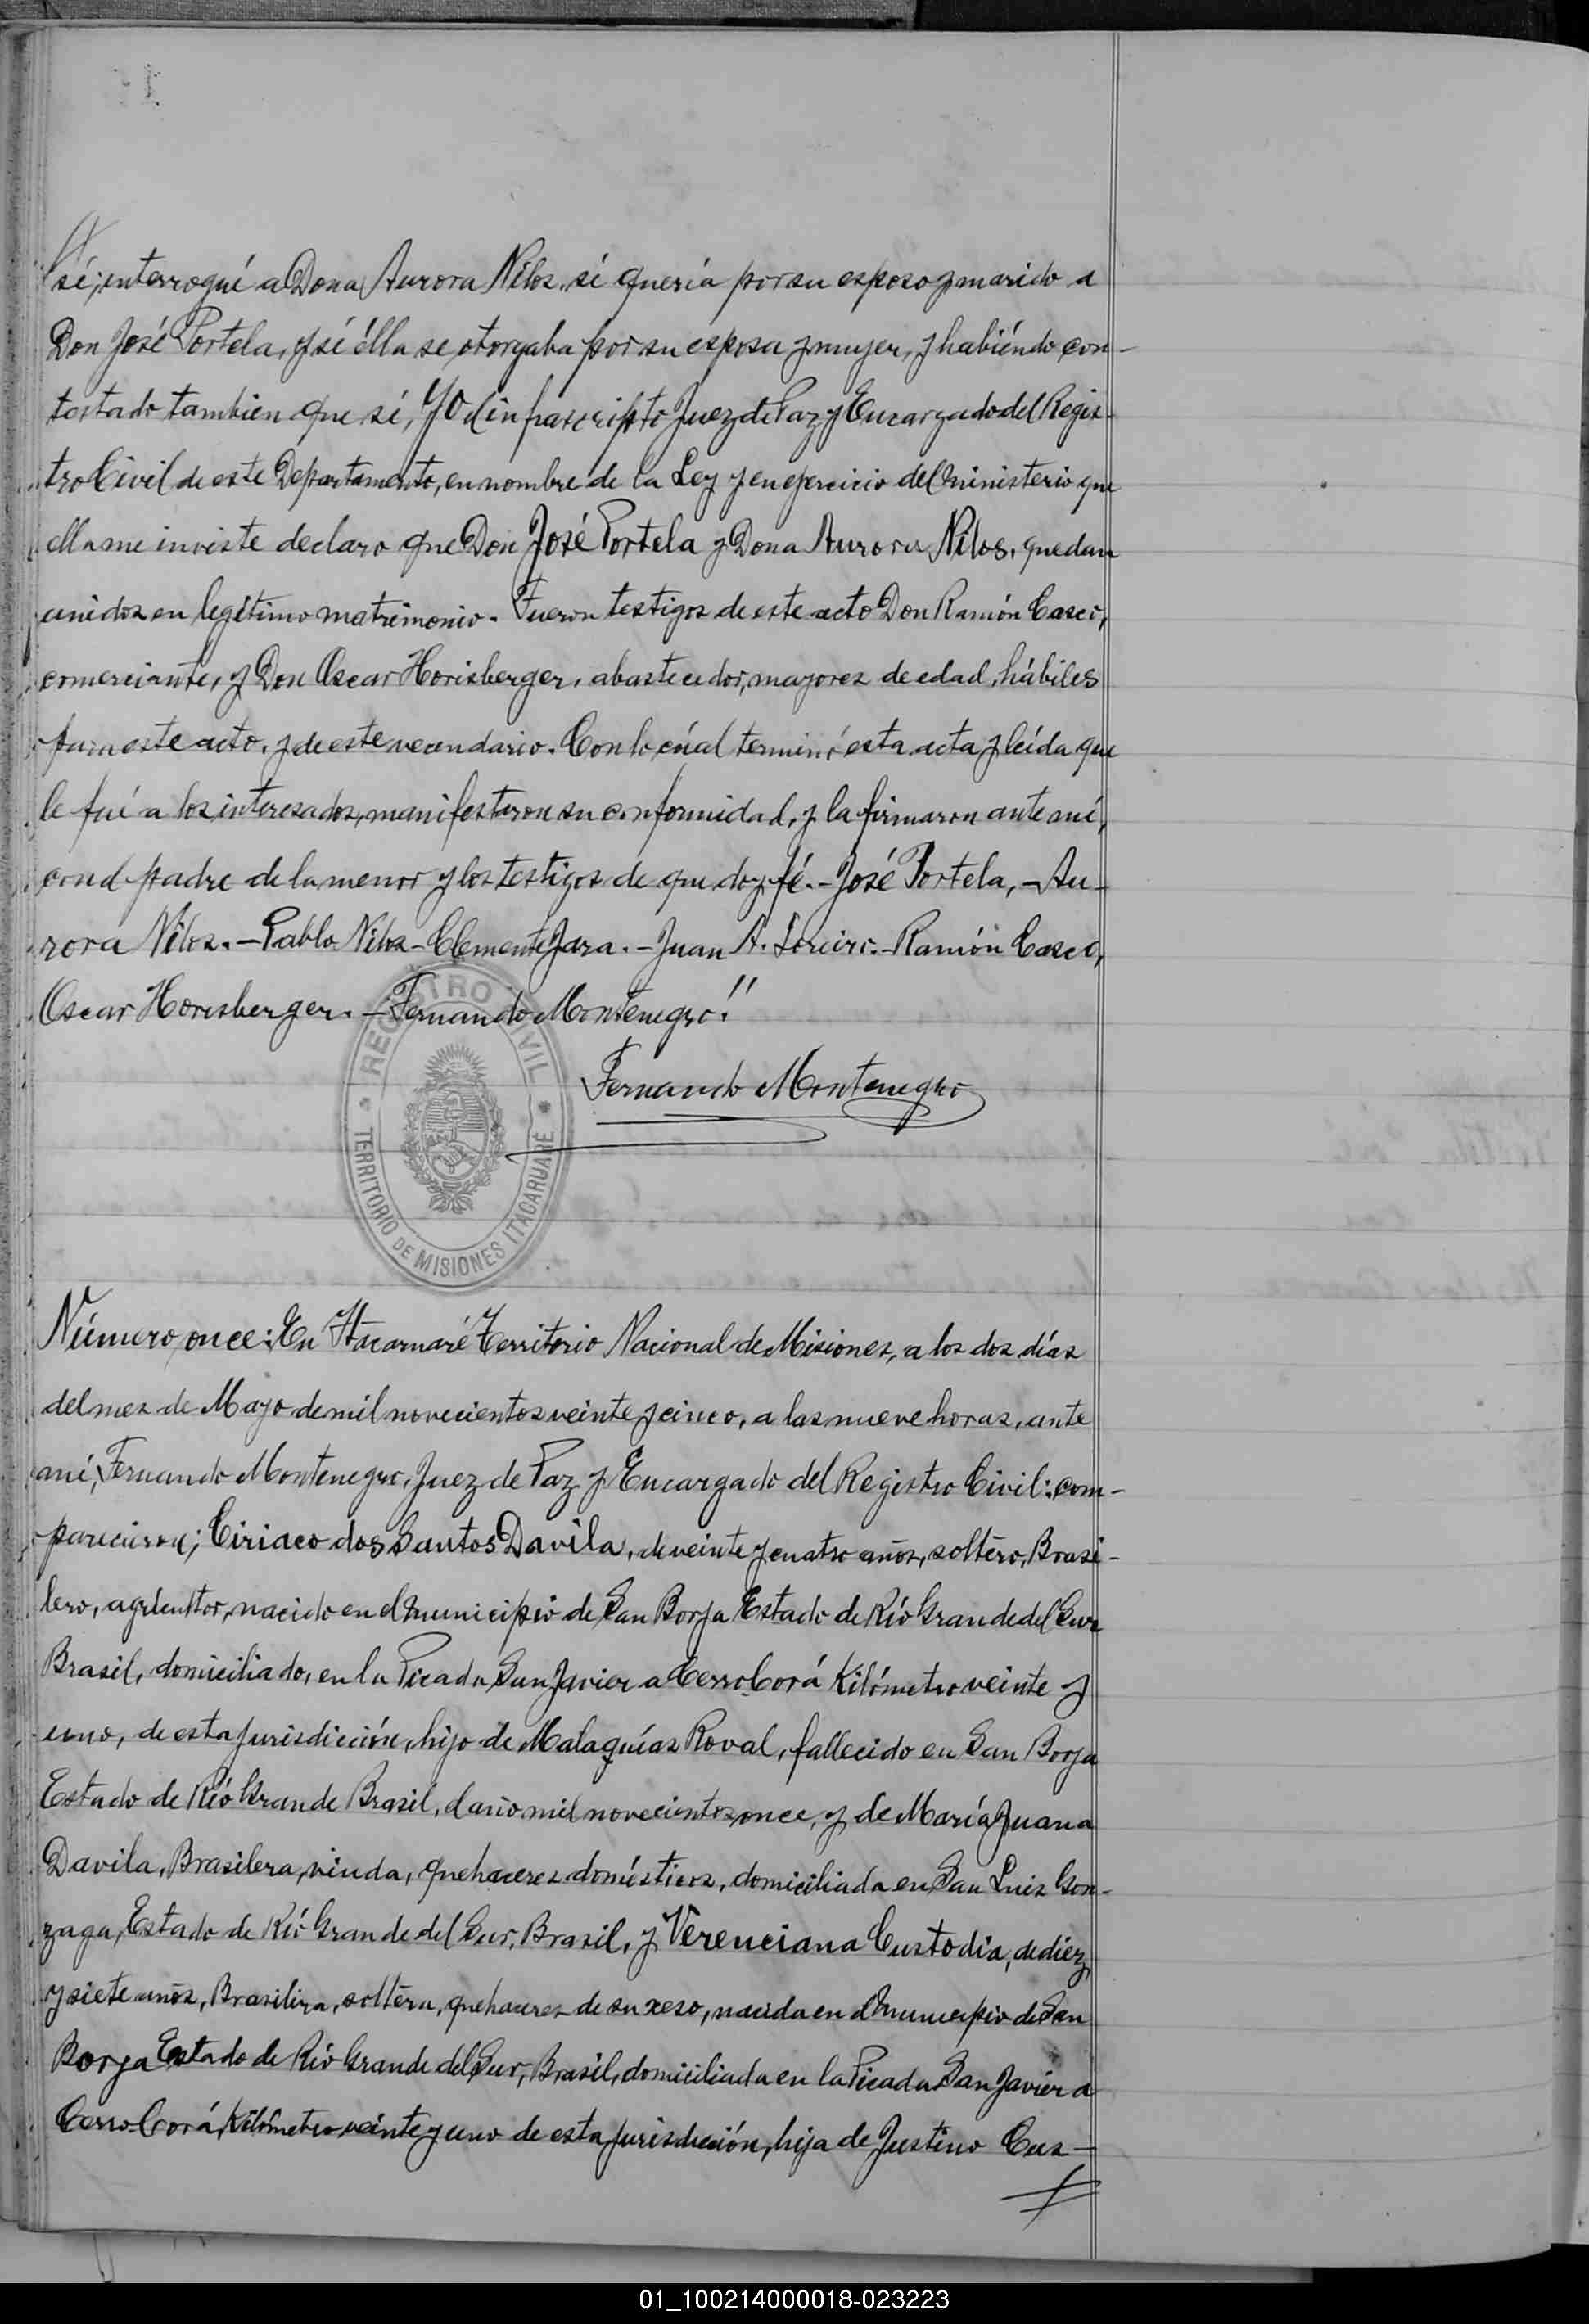 sí; interrogué a Dona Aurora Nilos. sí quería por su esposo y marido a
Don José Portela, y sí élla se otorgaba por su esposa y mujer, y habiéndo con-
testado tambien que sí, YO el infrascripto Juez de Paz y Encargado del Regis-
tro Civil de este Departamento, en nombre de la Ley y en ejercicio del ministerio que
ella me inviste declaro que Don José Portela y Dona Aurora Nilos, quedan
unidos en legítimo matrimonio. Fueron testigos de este acto Don Ramón Casco,
comerciante, y Don Oscar Horisberger, abastecedor, mayores de edad, hábiles
para este acto, y de este vecindario. Con lo cúal terminó esta acta y leída que
le fué a los interesados, manifestaron su conformidad, y la firmaron ante mí,
con el padre de la menor y los testigos de que doy fé. - José Portela, - Au-
rora Nilos. - Pablo Nilos - Clemente Jara. - Juan A. Loreiro. - Ramón Casco,
Oscar Horisberger. - Fernando Montenegro."
REGISTRO CIVIL
TERRITORIO DE MISIONES ITACARUARÉ
Fernando Montenegro
Número once: En Itacaruaré Territorio Nacional de Misiones, a los dos días
del mes de Mayo de mil novecientos veinte y cinco, a las nueve horas, ante
mí, Fernando Montenegro, Juez de Paz y Encargado del Registro Civil: com-
parecieron; Ciriaco dos Santos Davila, de veinte y cuatro años, soltero, Brasi-
lero, agricultor, nacido en el municipio de San Borja Estado de Río Grande del Sur
Brasil, domiciliado, en la Picada San Javier a Cerro Corá Kilómetro veinte y
uno, de esta jurisdicción, hijo de Malaquías Roval, fallecido en San Borja
Estado de Río Grande Brasil, el año mil novecientos once, y de María Juana
Davila, Brasilera, viuda, quehaceres domésticos, domiciliada en San Luis Gon-
zaga, Estado de Río Grande del Sur, Brasil, y Verenciana Custodia, de diez
y siete años, Brasilera, soltera, quehaceres de su xeso, nacida en el municipio de San
Borja Estado de Río Grande del Sur, Brasil, domiciliada en la Picada San Javier a
Cerro Corá, Kilómetro veinte y uno de esta jurisdicción, hija de Justino Cus-
01_100214000018-023223